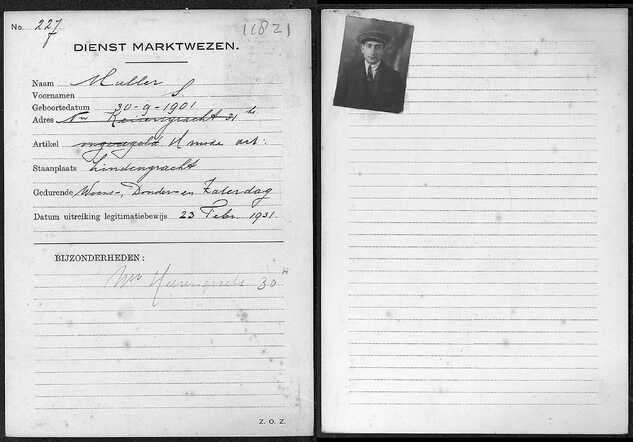 No. 227
11821
DIENST MARKTWEZEN.
Naam Muller
Voornamen S
Geboortedatum 30-9-1901
Adres Nw Keizersgracht 31 hs
Artikel ongeregeld H mode art.
Staanplaats Lindengracht
Gedurende Woens-, Donder- en Zaterdag
Datum uitreiking legitimatiebewijs 23 Febr. 1931
BIJZONDERHEDEN:
30 H
Z. O. Z.